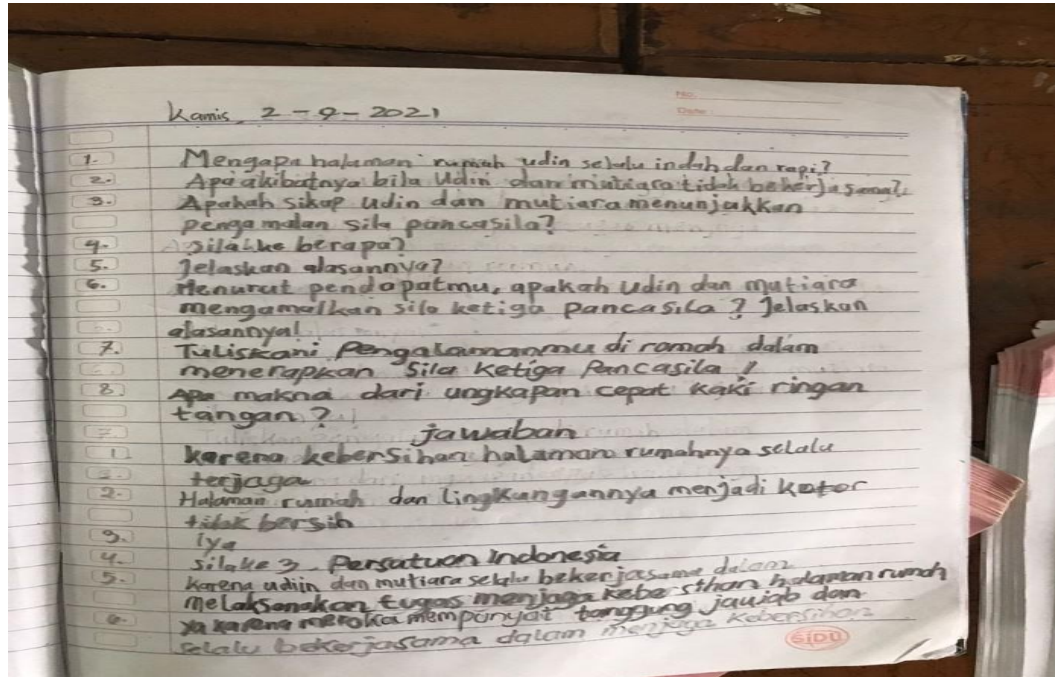 No.
Date
Kamis, 2 - 9 - 2021
1. Mengapa halaman rumah udin selalu indah dan rapi?
2. Apa akibatnya bila Udin dan mutiara tidak bekerjasama?
3. Apakah sikap udin dan mutiara menunjukkan
pengamalan sila pancasila?
4. Sila ke berapa?
5. Jelaskan alasannya?
6. Menurut pendapatmu, apakah Udin dan mutiara
mengamalkan sila ketiga Pancasila ? Jelaskan
alasannya!
7. Tuliskani Pengalamanmu di romah dalam
menerapkan Sila Ketiga Pancasila !
8) Apa makna dari ungkapan cepat kaki ringan
tangan ?
jawaban
1 karena kebersihan halaman rumahnya selalu
terjaga
2. Halaman rumah dan lingkungannya menjadi kotor
tidak bersih
3. iya
4. sila ke 3 Persatuan Indonesia
5. karena udiin dan mutiara selalu bekerjasama dalam
melaksanakan tugas menjaga kebersihan halaman rumah
6. ya karena mereka mempunyai tanggung jawab dan
selalu bekerjasama dalam menjaga kebersihan
SIDU